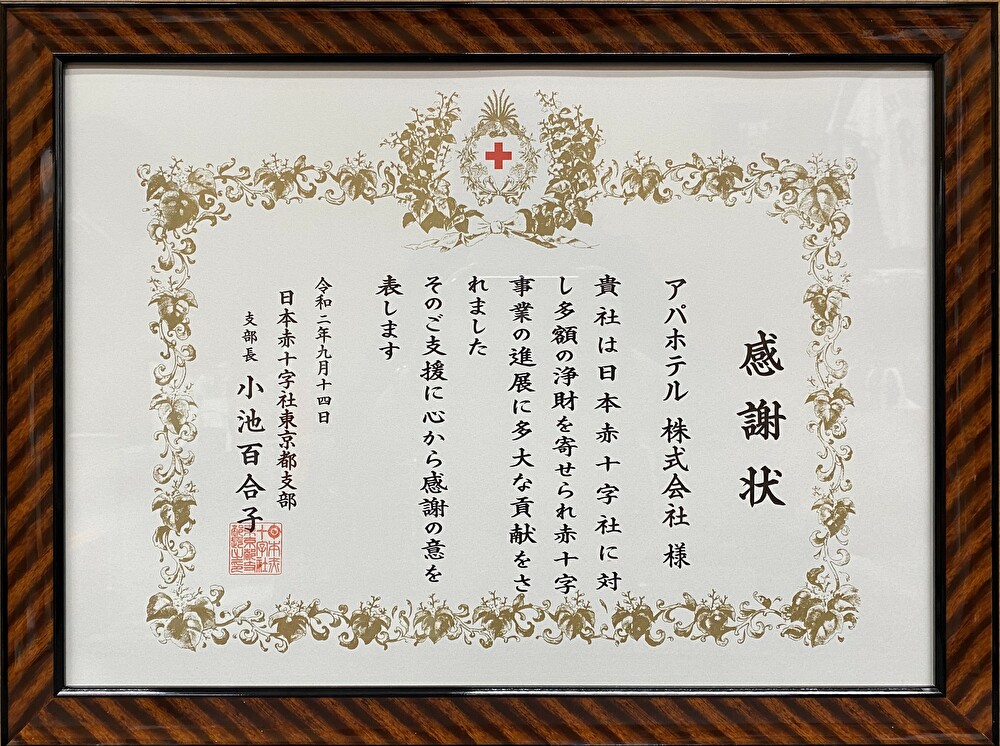 感謝状
アパホテル 株式会社 様
貴社は日本赤十字社に対
し多額の浄財を寄せられ赤十字
事業の進展に多大な貢献をさ
れました
そのご支援に心から感謝の意を
表します
令和二年九月十四日
日本赤十字社東京都支部
支部長 小池百合子